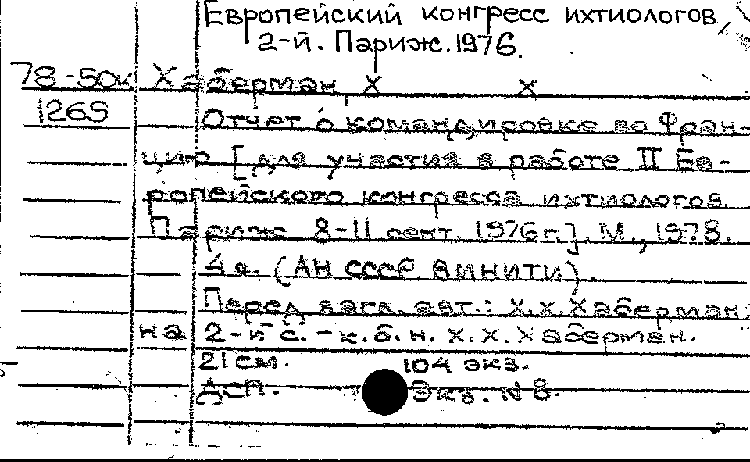 Европейский конгресс ихтиологов,
2-й. Париж. 1976.
78-50к Хаберман, Х Х
1265
Отчет о командировке во Фран-
цию [для участия в работе II Ев-
ропейского конгресса ихтиологов.
Париж 8-11 сент. 1976 г.]. М., 1978.
4 л. (АН СССР ВИНИТИ).
Перед загл. авт.: Х.Х. Хаберман;
на 2-й с. - к.б.н. Х.Х. Хаберман.
21 см. 104 экз.
ДСП. Экз. N 8.